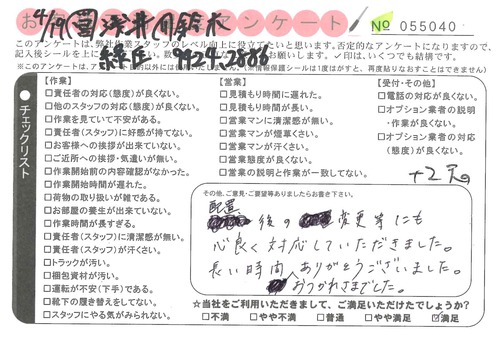 4/19
アンケート
№ 055040
このアンケートは、弊社作業スタッフのレベル向上に役立てたいと思います。否定的なアンケートになりますので、
記入後シールを上に
お願いします。✓印は、いくつでも結構です。
ご意見・ご要望等ありましたらお書き下さい。
チェックリスト
【作業】
□責任者の対応(態度)が良くない。
□他のスタッフの対応(態度)が良くない。
□作業を見ていて不安がある。
□責任者(スタッフ)に好感が持てない。
□お客様への挨拶が出来ていない。
□ご近所への挨拶・気遣いが無い。
□作業開始前の内容確認がなかった。
□作業開始時間が遅れた。
□荷物の取り扱いが雑である。
□お部屋の養生が出来ていない。
□作業時間が長すぎる。
□責任者(スタッフ)に清潔感が無い。
□責任者(スタッフ)が汗くさい。
□トラックが汚い。
□梱包資材が汚い。
□運転が不安(下手)である。
□靴下の履き替えをしてない。
□スタッフにやる気がみられない。
【営業】
□見積もり時間に遅れた。
□見積もり時間が長い。
□営業マンに清潔感が無い。
□営業マンが煙草くさい。
□営業マンが汗くさい。
□営業態度が良くない。
□営業の説明と作業が一致してない。
【受付・その他】
□電話の対応が良くない。
□オプション業者の説明
・作業が良くない。
□オプション業者の対応
(態度)が良くない。
配置
後の 変更等にも
心良く対応していただきました。
長い時間、ありがとうございました。
おつかれさまでした。
☆当社をご利用いただきまして、ご満足いただけたでしょうか?
□不満 □やや不満 □普通 □やや満足 ☑満足